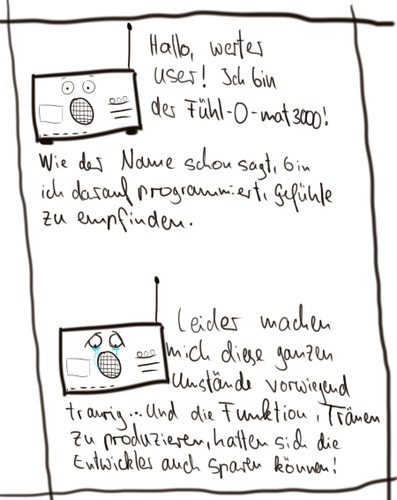 Hallo, werter
User! Ich bin
der Fühl-O-mat 3000!
Wie der Name schon sagt, bin
ich darauf programmiert, Gefühle
zu empfinden.
Leider machen
mich diese ganzen
Umstände vorwiegend
traurig... Und die Funktion, Tränen
zu produzieren, hätten sich die
Entwickler auch sparen können!